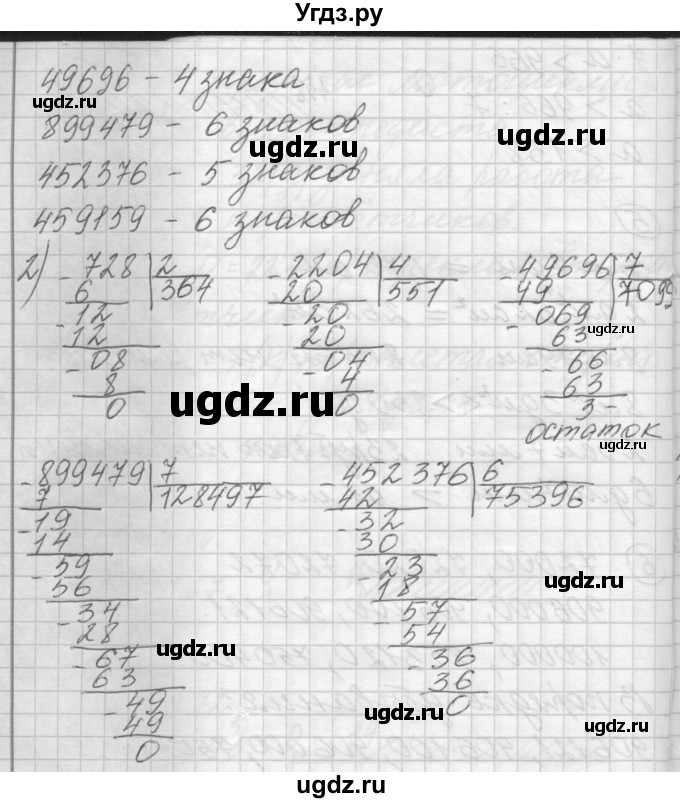 Угдз.ру
49696 – 4 знака
ugdz.ru
899479 – 6 знаков
ugdz.ru ugdz.ru
452376 – 5 знаков
459159 – 6 знаков
ugdz.ru
2) -728 | 2   -2204 | 4   -49696 | 7
6   364   20   551   49   7099
-12   -20   -069
12   20   63
-08   -04   -66
8   4   63
0   0   3 –
остаток
ugdz.ru
ugdz.ru
ugdz.ru
-899479 | 7   -452376 | 6
7   128497   42   75396
-19   -32
14   30
-59   -23
56   18
-34   -57
28   54
-67   -36
63   -36
-49   0
49
0
ugdz.ru
ugdz.ru
ugdz.ru
ugdz.ru
ugdz.ru